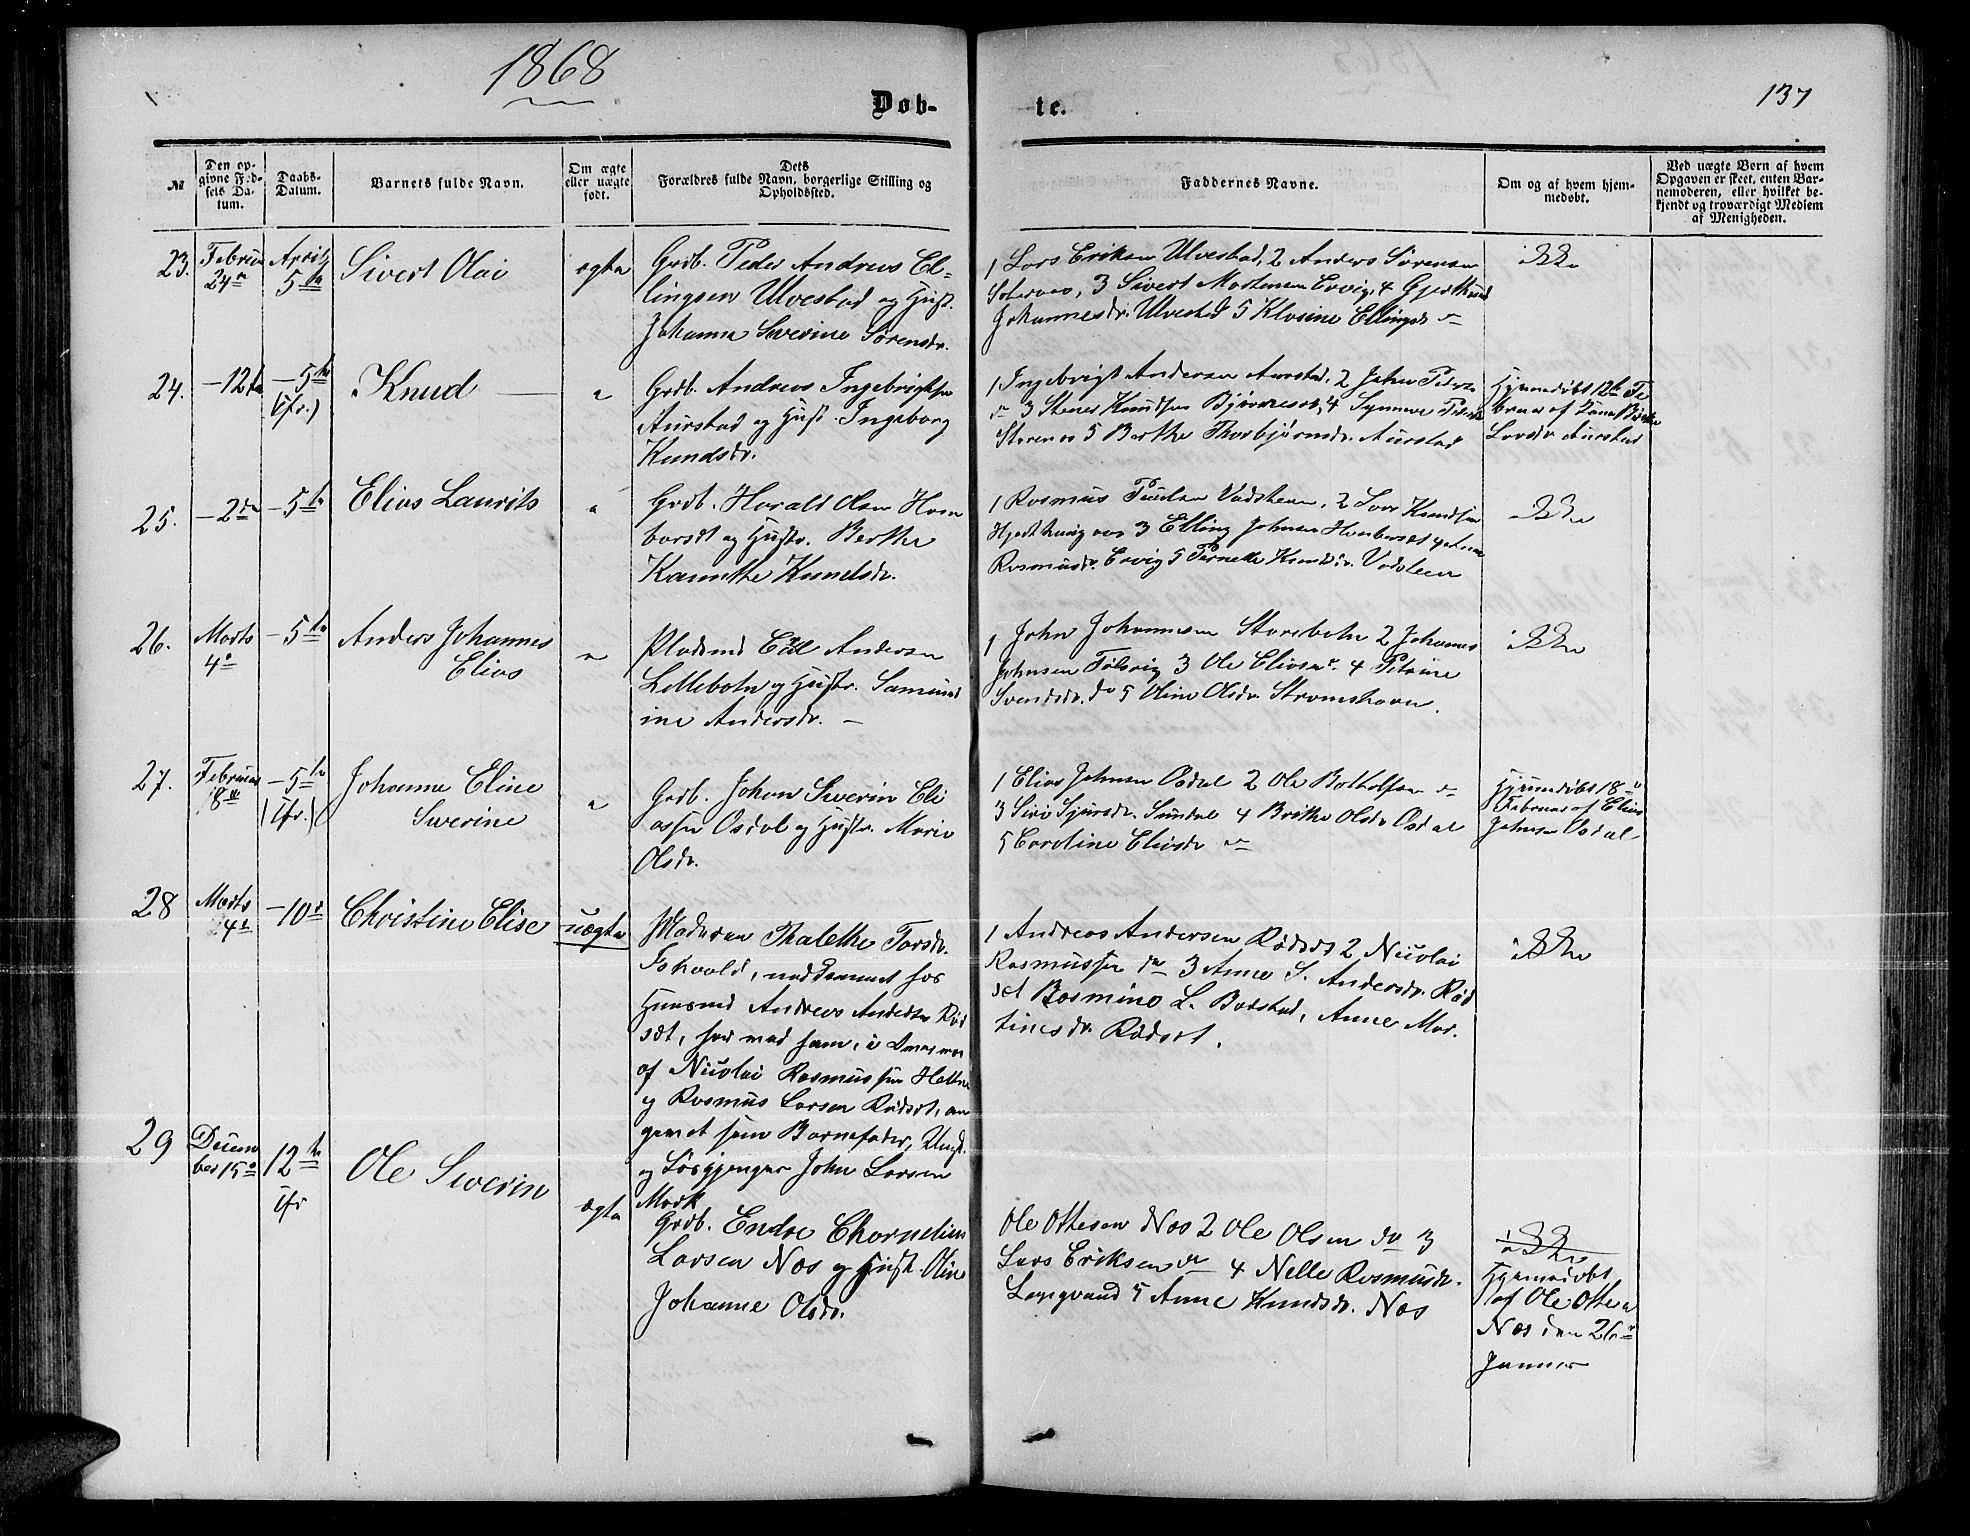 1868
Døb-
te.
137
№
Den op-
givne Fød-
sels Da-
tum.
Daabs-
Datum.
Barnets fulde Navn.
Om ægte
eller uægte
født.
Dets
Forældres fulde Navn, borgerlige Stilling og
Opholdssted.
Faddernes Navne.
Om og af hvem hjem-
medøbt.
Ved uægte Børn af hvem
Opgaven er skeet, enten Bar-
nemoderen, eller hvilket be-
kjendt og troværdigt Medlem
af Menigheden.
23.
Februar
24de
April
5te
Sivert Olai
ægte
Grdb. Peder Andreas El-
lingsen Ulvestad og Hust.
Johanne Severine Sørensdr.
1 Lars Eriksen Ulvestad, 2 Anders Sørensen
3 Sivert Mortensen Ervig, 4 Gjertrud
Johannesdr. Ulvestad 5 Klasine Ellingsdr do
ikke
24.
-12te
-5te
(Ifr.)
Knud
"
Grdb. Andreas Ingebrigtsen
Aurstad og Hust. Ingeborg
Knudsdr.
1 Ingebrigt Andersen Aurstad, 2 John Peders
do 3 Stener Knudsen 4 Synneve Pedersdr
Storenes 5 Berthe Thorbjørnsdr. Aurstad
Hjemmedøbt 12te Fe
bruar af
Larsdr Aurstad
25.
-2den
-5te
Elias Laurits
"
Grdb. Harald Olsen Horn
borset og Hustr. Berthe
Karenthe Knudsdr.
1 Rasmus Vadsteen, 2 Lars Knudsen
3 Elling Johnsen
Rasmusdr. Ervig 5 Pernelle Knudsdr. Vadsteen
ikke
26.
Marts
4de
-5te
Anders Johannes
Elias
"
Pladsmd Andersen
Lillebotn og Hustr. Samund
ine Andersdr. —
1 John Johannesen Storebotn 2 Johannes
Johnsen 3 Ole Eliasen do. 4 Petrine
Svendsdr. do 5 Oline Olsdr. Strømshavn.
ikke
27.
Februar
18de
-5te
(Ifr.)
Johanne Eline
Severine
"
Grdb. Johan Severin Eli
assen Osdal og Hustr. Marie
Olsdr.
1 Elias Johnsen Osdal 2 Ole Botholfsen do
3 Siri Sjursdr. Sundal 4 Brithe Olsdr Osdal
5 Caroline Eliasdr do
Hjemmedøbt 18de
Februar af Elias
Johnsen Osdal
28
Marts
4de
-10de
Christine Elise
uægte
Moderen Thalethe Torsdr.
nedkommet hos
Huusmd Andreas Andersen Rød
set, har med ham, i Overvær
af Nicolai Rasmussen
og Rasmus Larsen Rødset, an
givet som Barnefader, Ungk.
og Løsgjenger John Larsen
Mork
1 Andreas Andersen Rødset 2 Nicolai
Rasmussen do 3 Anne S. Andersdr. Rød
set Rasmine L. Barstad, Anne Mar.
tinesdr. Rødset.
ikke
29
Decem
ber 15de
12te
Ifr
Ole Severin
ægte
Grdb. Endre Chornelius
Larsen Næs og Hust. Oline
Johanne Olsdr.
Ole Ottesen Næs 2 Ole Olsen do 3
Lars Eriksen do 4 Nelle Rasmusdr.
Langvand 5 Anne Knudsdr. Næs
ikke
Hjemmedøbt
af Ole Ottesen
Næs den 26de
Januar